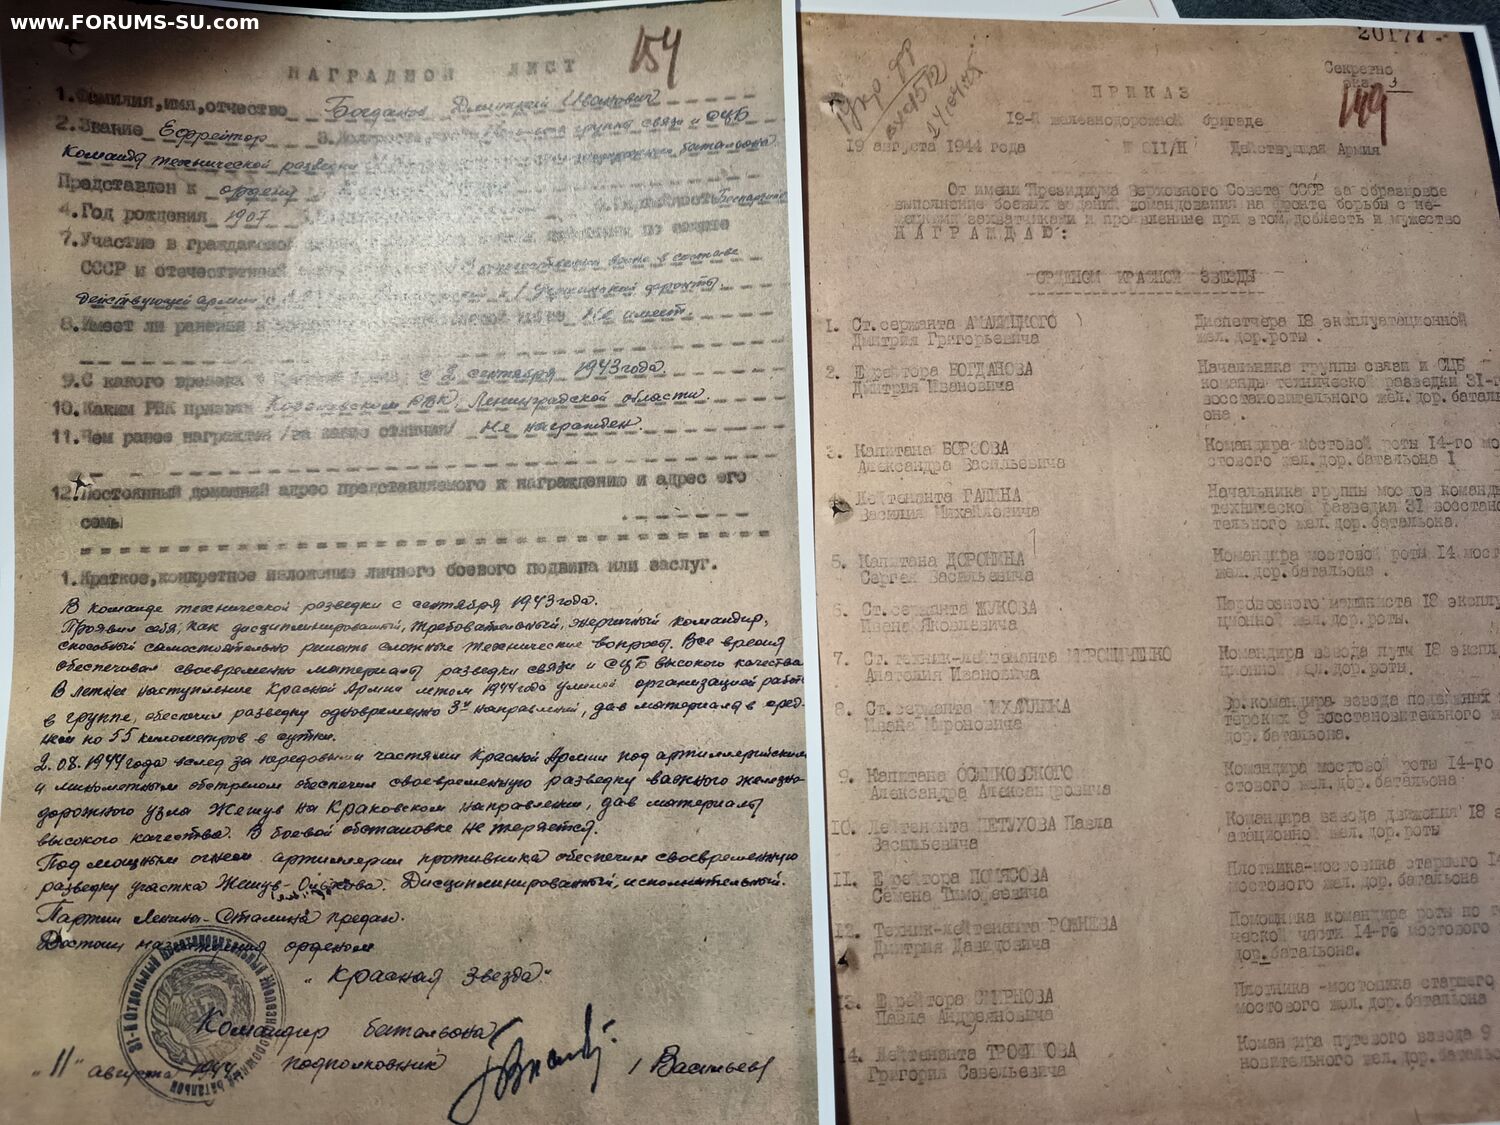 www.FORUMS-SU.com
154
НАГРАДНОЙ ЛИСТ
1.Фамилия,имя,отчество Богданов Дмитрий Иванович
2.Звание Ефрейтор 3. группа связи и СЦБ
Команда технической разведки батальона.
Представлен к ордену
4.Год рождения 1907 Беспартийный
7.Участие в гражданской
СССР и отечественной В отечественной войне в составе
действующей армии с
8.Имеет ли ранения и Не имеет.
9.С какого времени в с 2 сентября 1943 года.
10.Каким РВК призван РВК, Ленинградской области.
11.Чем ранее награжден /за какие отличия/ Не награжден.
12.Постоянный домашний адрес представляемого к награждению и адрес его
семьи
1.Краткое,конкретное изложение личного боевого подвига или заслуг.
В команде технической разведки с сентября 1943 года.
Проявил себя, как дисциплинированный, требовательный, энергичный командир,
способный самостоятельно решать сложные технические вопросы. Все время
обеспечивал своевременно материал разведки связи и СЦБ высокого качества
В летнее наступление Красной Армии летом 1944 года умелой организацией работ
в группе, обеспечил разведку одновременно 3х направлений, дав материал в сред-
нем по 55 километров в сутки.
2.08.1944 года вслед за передовыми частями Красной Армии под артиллерийским
и минометным обстрелом обеспечил своевременную разведку важного железно-
дорожного узла Жешув на Краковском направлении, дав материалы
высокого качества. В боевой обстановке не теряется.
Под мощным огнем артиллерии противника обеспечил своевременную
разведку участка Жешув- Дисциплинированный, исполнительный.
Партии Ленина-Сталина предан.
Достоин награждения орденом
"Красная Звезда"
31-й Отдельный Восстановительный Железнодорожный Батальон
Командир батальона
"11" августа 1944 подполковник / Васильев/
20177
Секретно
экз. 3
149
24/8
ПРИКАЗ
19-й железнодорожной бригаде
19 августа 1944 года № 011/Н Действующая Армия
От имени Президиума Верховного Совета СССР за образцовое
выполнение боевых заданий командования на фронте борьбы с не-
мецкими захватчиками и проявленные при этом доблесть и мужество
НАГРАЖДАЮ:
ОРДЕНОМ КРАСНОЙ ЗВЕЗДЫ
1. Ст.сержанта АМАЛИЦКОГО Диспетчера 18 эксплуатационной
Дмитрия Григорьевича жел.дор.роты .
2. Ефрейтора БОГДАНОВА Начальника группы связи и СЦБ
Дмитрия Ивановича команды технической разведки 31-г
восстановительного жел.дор.баталь
она .
3. Капитана БОРЗОВА Командира мостовой роты 14-го мо
Александра Васильевича стового жел.дор.батальона
4. Лейтенанта ГАЛИНА Начальника группы мостов команды
Василия Михайловича технической разведки 31 восстано
вительного жел.дор.батальона.
5. Капитана ДОРОНИНА Командира мостовой роты 14 мост
Сергея Васильевича жел.дор.батальона .
6. Ст.сержанта ЖУКОВА Паровозного машиниста 18 эксплу
Ивана Яковлевича ционной жел.дор.роты.
7. Ст.техник-лейтенанта МИРОШНИЧЕНКО Командира взвода пути 18 экспл
Анатолия Ивановича ционной жел.дор.роты.
8. Ст.сержанта МИХАЙЛИКА Вр.командира взвода подъемных
Ивана Мироновича терских 9 восстановительного ж
дор.батальона.
9. Капитана ОСИПКОВСКОГО Командира мостовой роты 14-го
Александра Александровича стового жел.дор.батальона
10. Лейтенанта ПЕТУХОВА Павла Командира взвода движения 18 э
Васильевича атационной жел.дор.роты
11. Ефрейтора ПОМЯСОВА Плотника-мостовика старшего 14
Семена Тимофеевича мостового жел.дор.батальона
12. Техник-лейтенанта РОЖНЕВА Помощника командира роты по т
Дмитрия Давидовича ческой части 14-го мостового
дор.батальона.
13. Ефрейтора СМИРНОВА Плотника-мостовика старшего
Павла Андреяновича мостового жел.дор.батальона
14. Лейтенанта ТРОФИМОВА Командира путевого взвода 9
Григория Савельевича новительного жел.дор.батальо